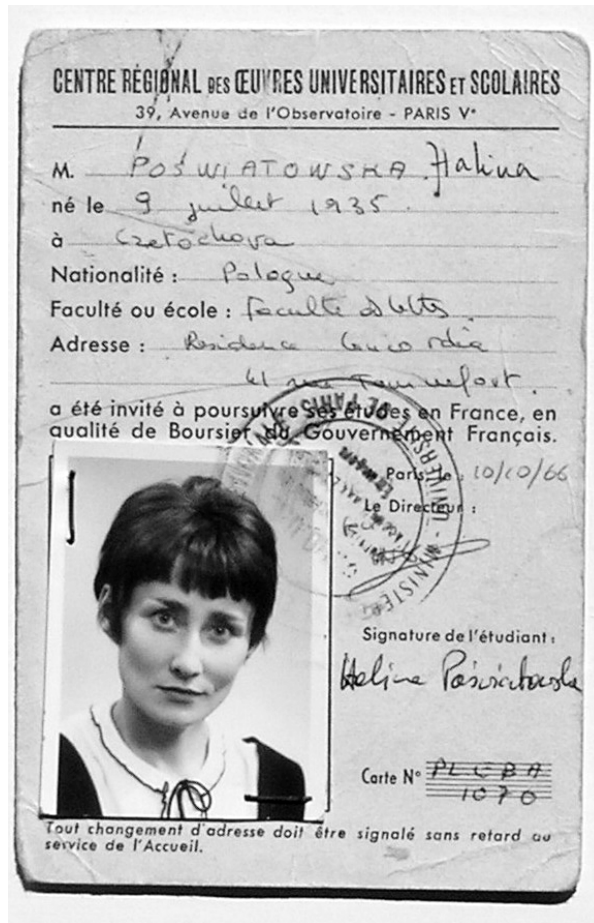 CENTRE RÉGIONAL DES ŒUVRES UNIVERSITAIRES ET SCOLAIRES
39, Avenue de l'Observatoire - PARIS Vᵉ
M. POŚWIATOWSKA Halina
né le 9 juillet 1935
à Czetochova
Nationalité : Pologne
Faculté ou école : Faculté d Lettres
Adresse : Residence Concordia
41 rue Tournefort.
a été invité à poursuivre ses études en France, en
qualité de Boursier du Gouvernement Français.
Paris, le 10/10/66
Le Directeur :
UNIVERSITÉ DE PARIS - MINISTÈRE
Signature de l'étudiant :
Halina Poświatowska
Carte N° PLEBA
1070
Tout changement d'adresse doit être signalé sans retard au
service de l'Accueil.